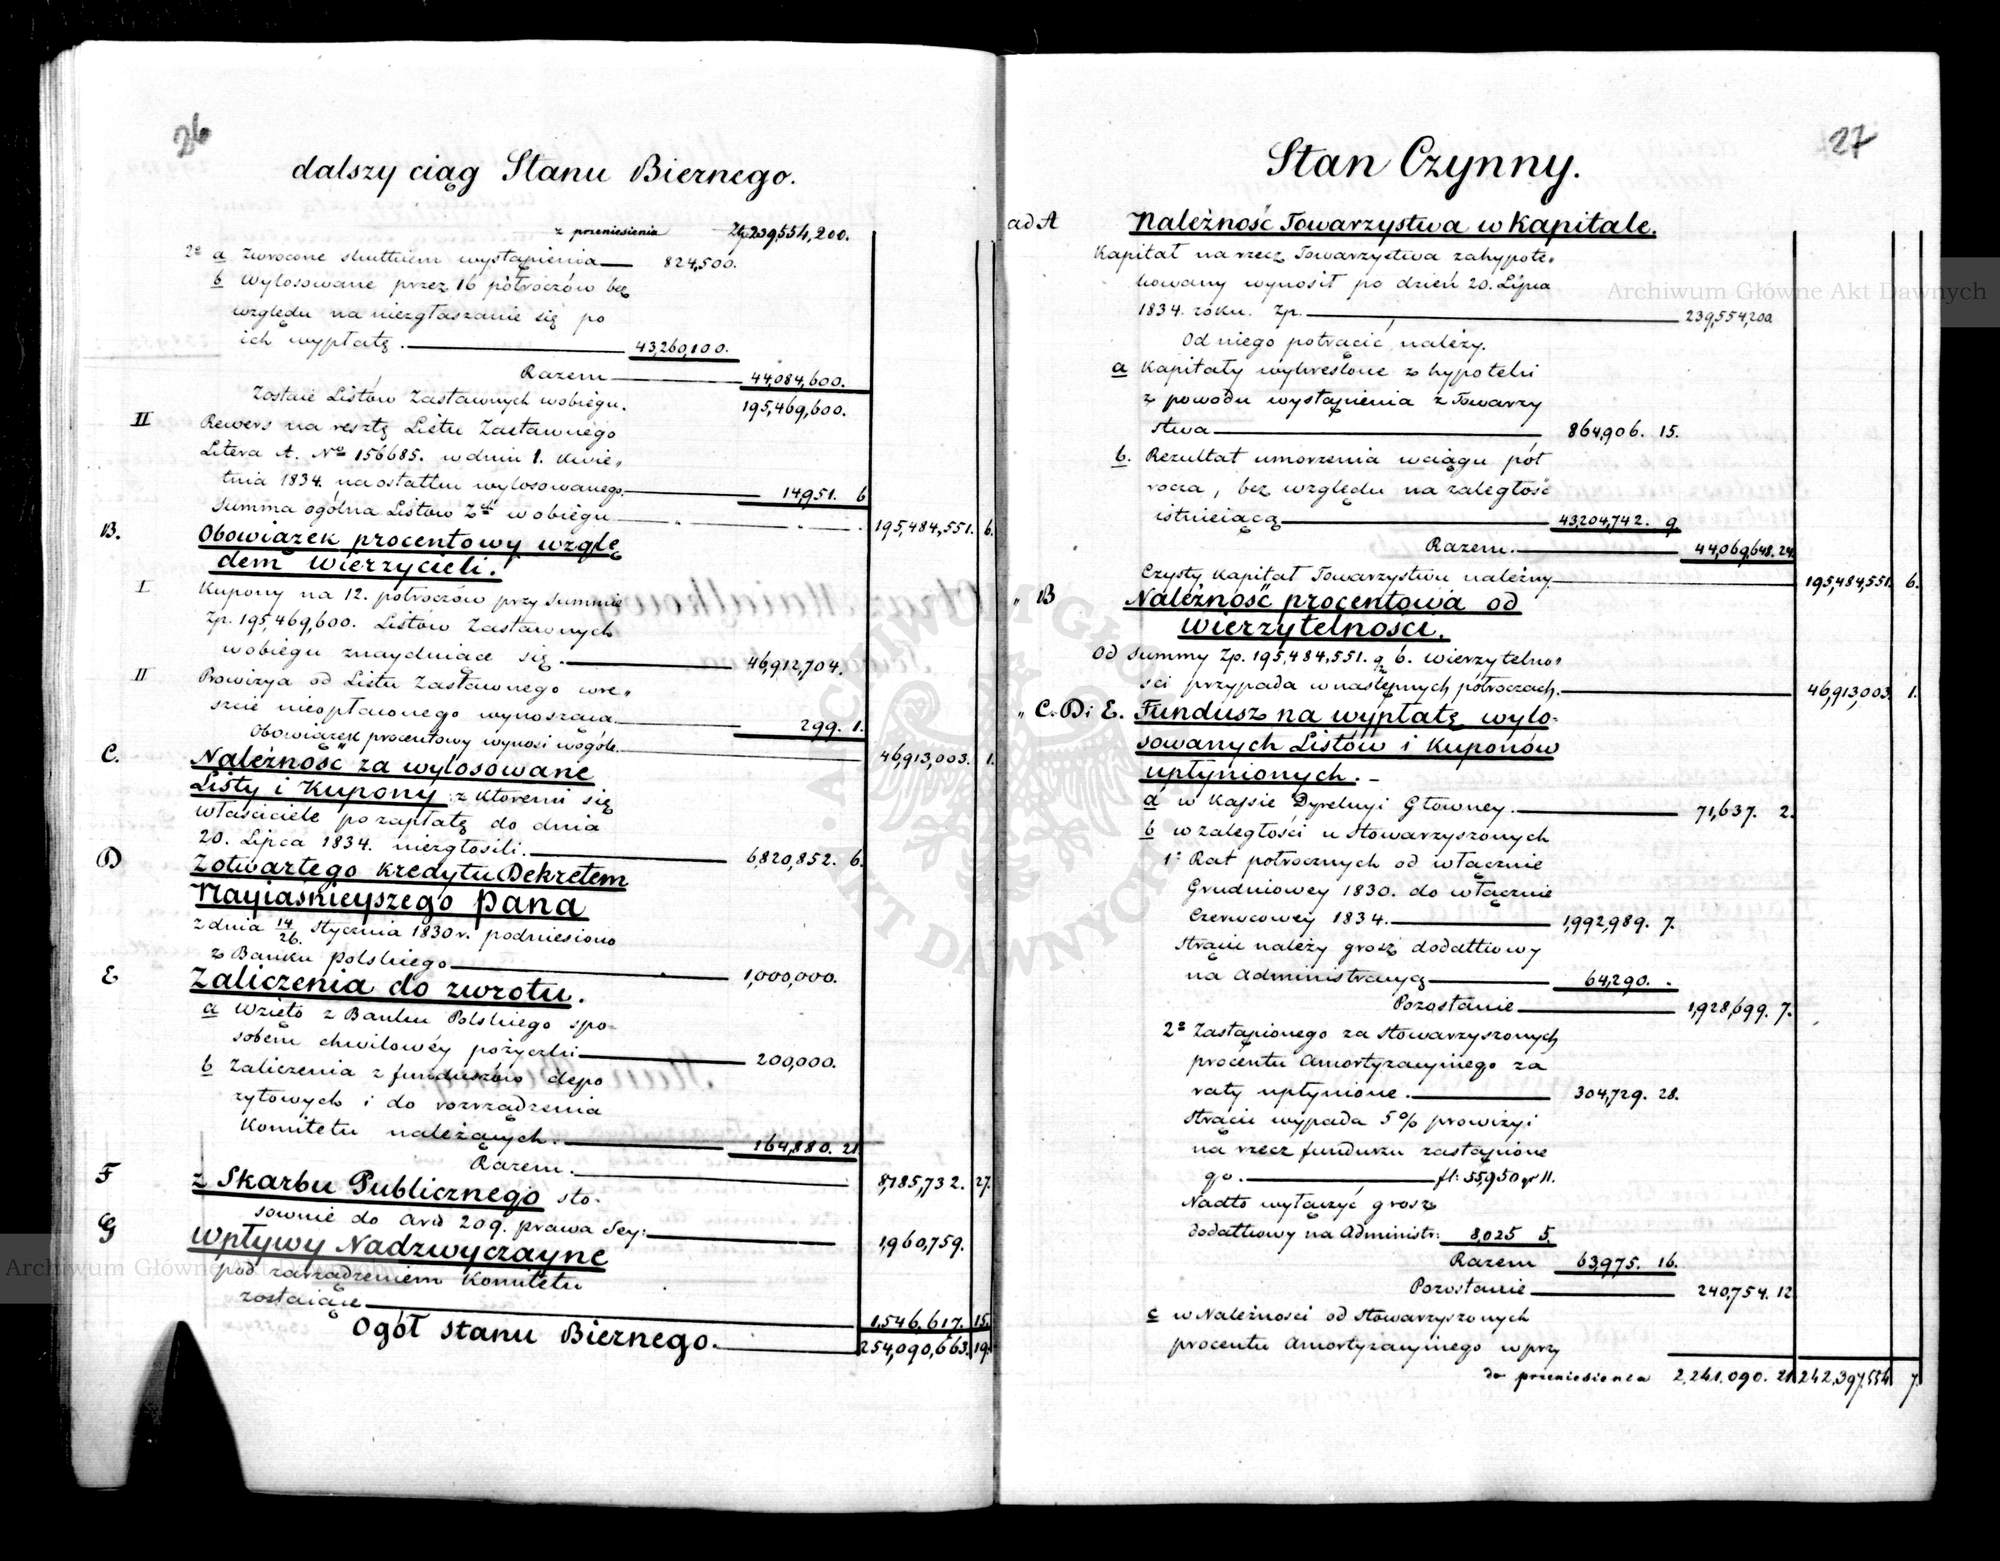 26
dalszy ciąg Stanu Biernego.
z przeniesienia Zp. 239,554,200.
2º a Zwrócone skutkiem wystąpienia 824,500.
b Wylosowane przez 16 półroczów bez
względu na niezgłaszanie się po
ich wypłatę. 43,260,100.
Razem 44,084,600.
Zostaie Listów Zastawnych wobiegu. 195,469,600.
II Rewers na resztę Listu Zastawnego
Litera A. Nº 156685. w dniu 1. Kwie-
tnia 1834. na ostatku wylosowanego. 14,951. 6
Summa ogólna Listów Zch w obiegu 195,484,551. 6.
B. Obowiązek procentowy wzglę
dem Wierzycieli.
I Kupony na 12. półroczów przy summie
Zp. 195,469,600. Listów Zastawnych
wobiegu znayduiące się. 46,912,704.
II Prowizya od Listu Zastawnego wre-
szcie nieopłaconego wynosząca 299. 1.
Obowiązek procentowy wynosi wogóle. 46,913,003. 1.
C. Należność za wylosowane
Listy i Kupony z któremi się
właściciele po zapłatę do dnia
20. Lipca 1834. niezgłosili. 6820,852. 6.
D Zotwartego kredytu Dekretem
Nayiaśnieyszego Pana
z dnia 14/26. Stycznia 1830 r. podniesiono
z Banku Polskiego 1,000,000.
E Zaliczenia do zwrotu.
a Wzięto z Banku Polskiego spo-
sobem chwilowéy pożyczki 200,000.
b Zaliczenia z funduszów depo
zytowych i do rozrządzenia
Komitetu należących. 164,880. 21
Razem. 8,185,732. 27.
F z Skarbu Publicznego sto-
sownie do Art. 209. prawa Sey: 1,960,759.
G Wpływy Nadzwyczayne
pod zarządzeniem Komitetu
zostaiące 1,546,617. 15.
Ogół stanu Biernego. 254,090,663. 19.
27
Stan Czynny.
ad A Należność Towarzystwa w Kapitale.
Kapitał na rzecz Towarzystwa zahypote-
kowany wynosił po dzień 20. Lipca
1834. roku. Zp. 239,554,200.
Od niego potrącić należy.
a Kapitały wykreślone z hypoteki
z powodu wystąpienia z Towarzy
stwa 864,906. 15.
b. Rezultat umorzenia wciągu pół
rocza, bez względu na zaległość
istnieiącą 43,204,742. 9
Razem. 44,069,648. 24
Czysty Kapitał Towarzystwu należny 195,484,551. 6.
" B Należność procentowa od
wierzytelności.
Od summy Zp. 195,484,551. g 6. wierzytelno-
ści przypada w następnych półroczach. 46,913,003. 1.
" C. D i E. Fundusz na wypłatę wylo-
sowanych Listów i Kuponów
upłynionych.
a w Kassie Dyrekcyi Głowney. 71,637. 2.
b w zaległości u Stowarzyszonych
1º Rat półrocznych od włącznie
Grudniowey 1830. do włącznie
Czerwcowey 1834. 1,992,989. 7.
Strącić należy grosz dodatkowy
na Administracyą 64,290.
Pozostanie 1,928,699. 7.
2º Zastąpionego za Stowarzyszonych
procentu Amortyzacyjnego za
raty upłynione. 304,729. 28.
Strącić wypada 5% prowizyi
na rzecz funduszu zastąpione
go. fl: 55,950 gr 11.
Nadto wyłączyć grosz
dodatkowy na Administr: 8,025 5.
Razem 63,975. 16.
Pozostanie 240,754. 12
c w Należności od Stowarzyszonych
procentu Amortyzacyjnego wprzy
do przeniesienia 2,241,090. 21 242,397,554 7.
Archiwum Główne Akt Dawnych
Archiwum Główne Akt Dawnych
ARCHIWUM GŁÓWNE AKT DAWNYCH